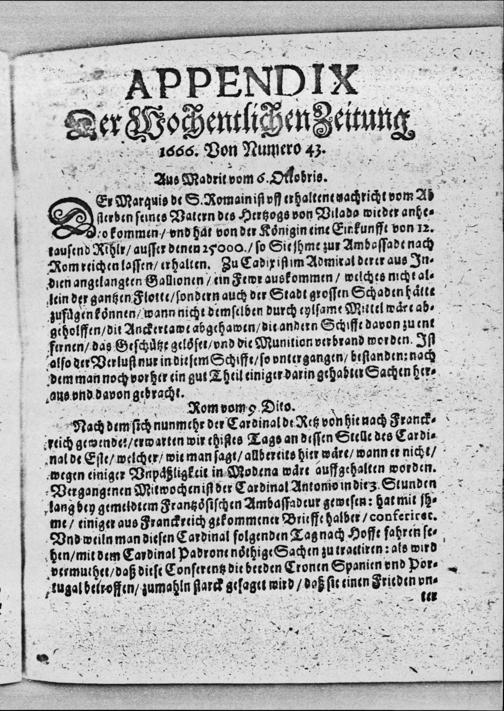 APPENDIX
Der Wochentlichen Zeitung
1666. Von Numero 43.
Aus Madrit vom 6. Oktobris.
DEr Marquis de S. Romain ist uff erhaltene nachricht vom Ab
sterben seines Vatern des Hertzogs von Vilado wieder anhe-
ro kommen / und hat von der Königin eine Einkunffe von 12.
tausend Rthlr / ausser denen 25000. / so Sie jhme zur Ambassade nach
Rom reichen lassen / erhalten. Zu Cadix ist im Admiral derer aus In-
dien angelangten Gallionen / ein Fewr auskommen / welches nicht al-
lein der gantzen Flotte / sondern auch der Stadt grossen Schaden hätte
zufügen können / wann nicht demselben durch eylsame Mittel wäre ab-
geholffen / die Anckertawe abgehawen / die andern Schiffe davon zu ent
fernen / das Geschütze gelöset / vnd die Munition verbrand worden. Ist
also der Verlust nur in diesem Schiffe / so untergangen / bestanden: nach
dem man noch vorher ein gut Theil einiger darin gehabter Sachen her-
aus vnd davon gebracht.
Rom vom 9. Dito.
Nach dem sich nunmehr der Cardinal de Retz von hie nach Franck-
reich gewendet / erwarten wir ehistes Tags an dessen Stelle des Cardi-
nal de Este / welcher / wie man sagt / allbereits hier wäre / wann er nicht /
wegen einiger Vnpäßligkeit in Modena wäre auffgehalten worden.
Vergangenen Mitwochen ist der Cardinal Antonio in die 3. Stunden
lang bey gemeldtem Frantzösischen Ambassadeur gewesen: hat mit jh-
me / einiger aus Franckreich gekommener Brieffe halber / conferiret.
Vnd weiln man diesen Cardinal folgenden Tag nach Hoffe fahren se-
hen / mit dem Cardinal Padrone nöthige Sachen zu tractiren: als wird
vermuthet / daß diese Conferentz die beeden Cronen Spanien vnd Por-
tugal betroffen / zumahln starck gesaget wird / daß sie einen Frieden vn-
ter